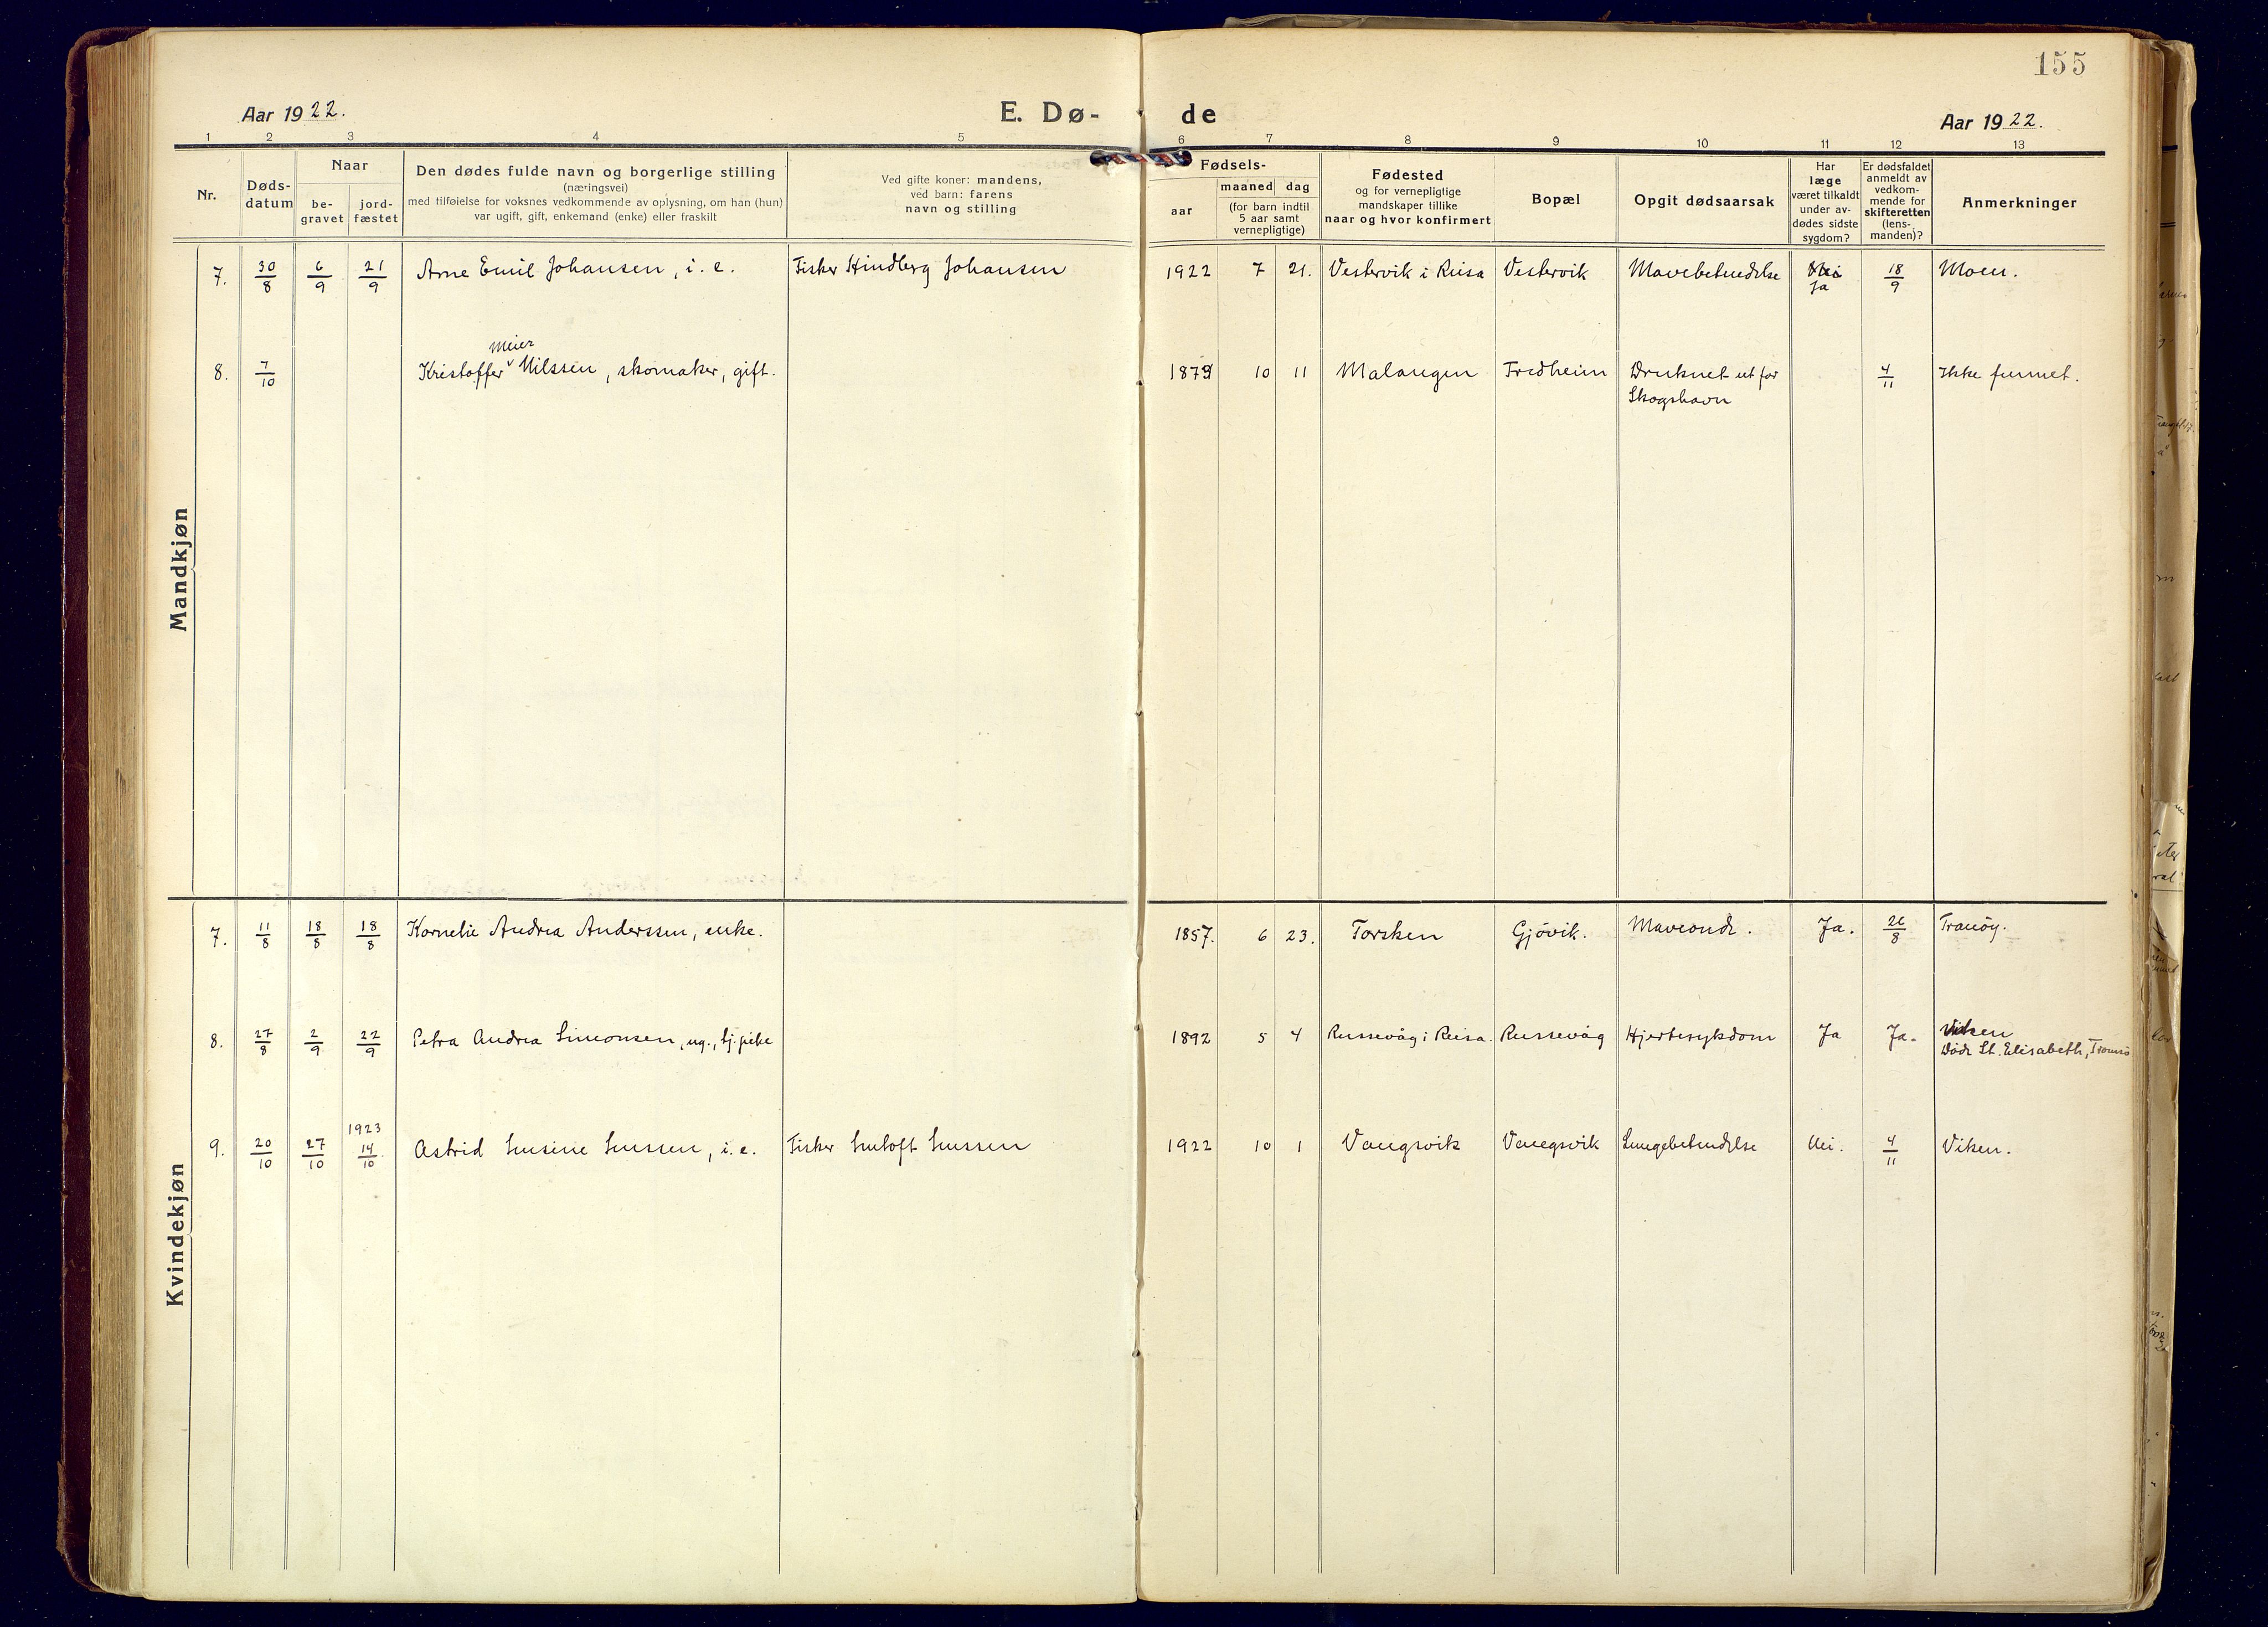 155
Aar 1922.
E. Dø-
de
Aar 1922.
1 2 3 4 5 6 7 8 9 10 11 12 13
Nr.
Døds-
datum
Naar
be-
gravet
jord-
fæstet
Den dødes fulde navn og borgerlige stilling
(næringsvei)
med tilføielse for voksnes vedkommende av oplysning, om han (hun)
var ugift, gift, enkemand (enke) eller fraskilt
Ved gifte koner: mandens,
ved barn: farens
navn og stilling
Fødsels-
aar
maaned dag
(for barn indtil
5 aar samt
vernepligtige)
Fødested
og for vernepligtige
mandskaper tillike
naar og hvor konfirmert
Bopæl
Opgit dødsaarsak
Har
læge
været tilkaldt
under av-
dødes sidste
sygdom?
Er dødsfaldet
anmeldt av
vedkom-
mende for
skifteretten
(lens-
manden)?
Anmerkninger
Mandkjøn
7. 30/8 6/9 21/9 Arne Emil Johansen, i. e. Fisker Hindberg Johansen 1922 7 21. Vestervik i Reisa Vestervik Mavebetendelse Nei 18/9 Moen.
Ja
Meier
8. 7/10 Kristoffer Nilssen, skomaker, gift. 10 11 Malangen Fredheim Druknet ut for 4/11 Ikke funnet.
Skogshavn
Kvindekjøn
7. 11/8 18/8 18/8 Kornelie Andrea Anderssen, enke. 1857. 6 23. Torsken Gjövik. Maveonde. Ja. 26/8 Tranöy.
8. 27/8 2/9 22/9 Petra Andrea Simonsen, ug., tj.pike 1892 5 4 Russevåg i Reisa. Russevåg Hjertesykdom Ja Ja. Viken
Döde St. Elisabeth, Tromsö
1923
9. 20/10 27/10 14/10 Astrid Jensine Jenssen, i. e. Fisker Jentoft Jenssen 1922 10 1 Vangsvik Vangsvik Lungebetendelse Nei. 4/11 Viken.